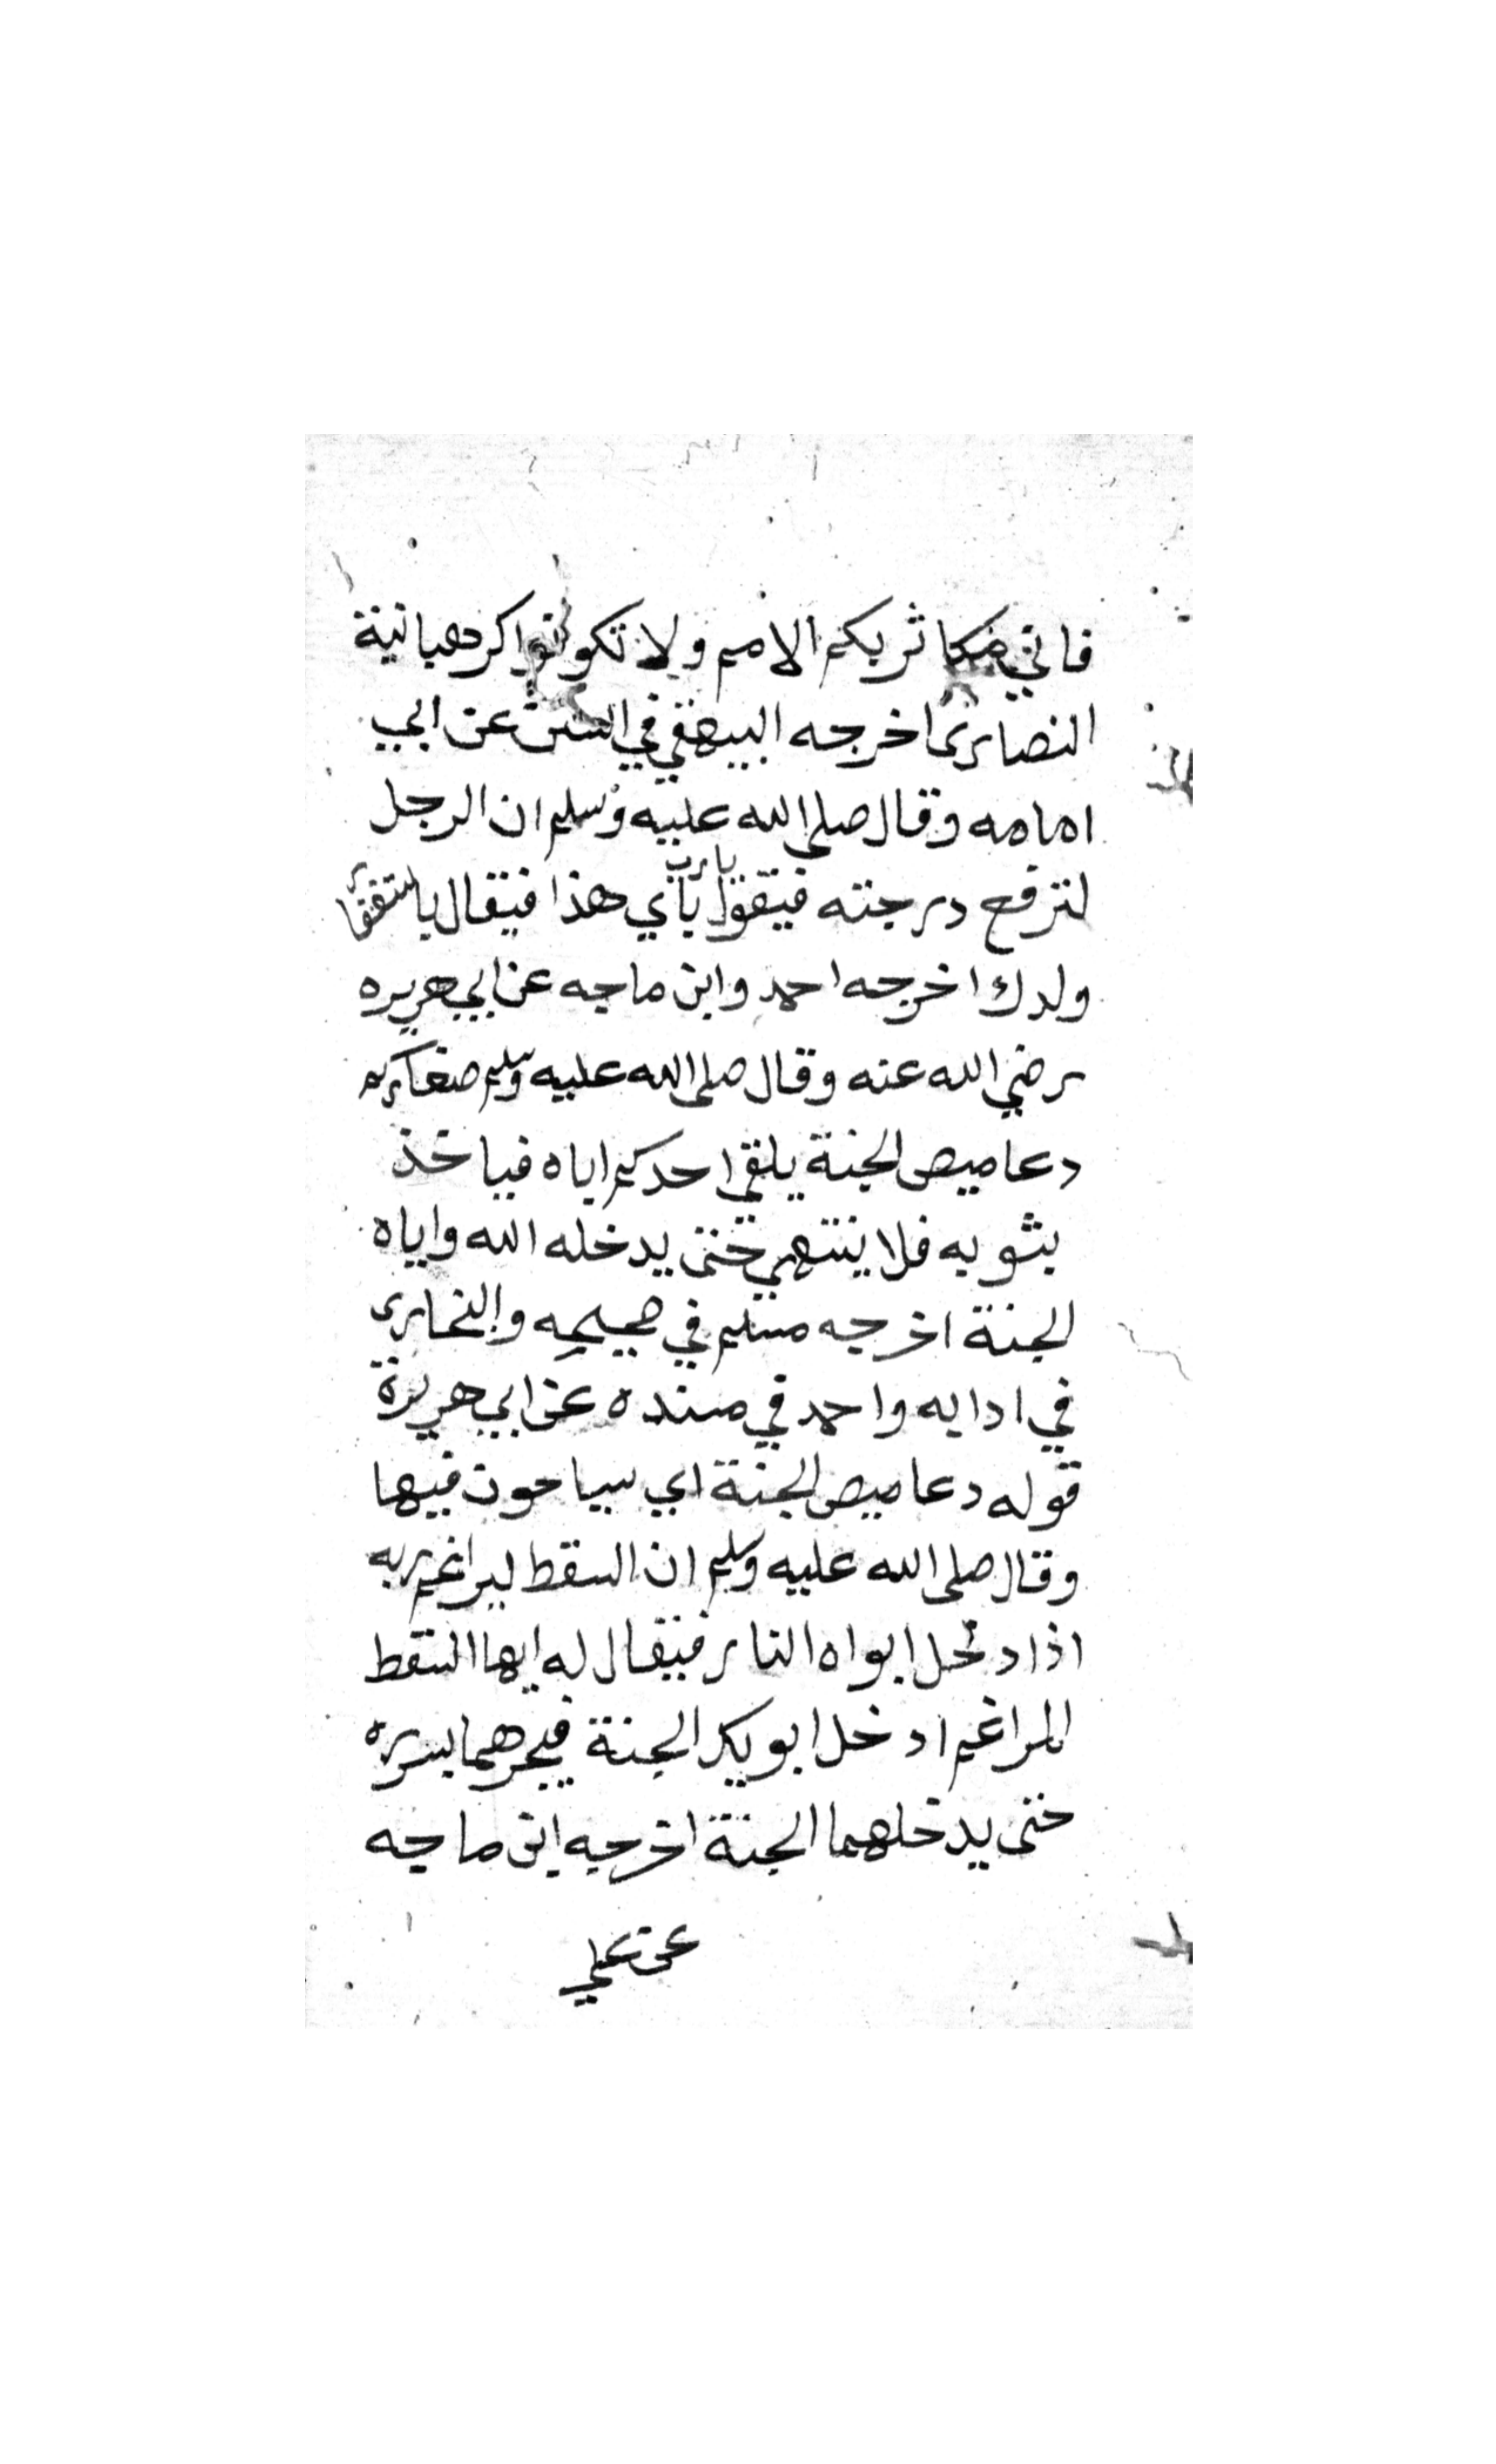 فاني مكاثر بكم الامم ولا تكونوا كرهبانية
النصارى اخرجه البيهقي في السنن عن ابي
امامه وقال صلى الله عليه وسلم ان الرجل
لترفع درجته فيقول يا رب باي هذا فيقال باستغفار
ولدك اخرجه احمد وابن ماجه عن ابي هريره
رضي الله عنه وقال صلى الله عليه وسلم صغاركم
دعاميص الجنة يلقى احدكم اباه فياخذ
بثوبه فلا ينتهي حتى يدخله الله واياه
الجنة اخرجه مسلم في صحيحه والبخارى
في ادابه واحمد في مسنده عن ابي هريرة
قوله دعاميص الجنة اي سياحون فيها
وقال صلى الله عليه وسلم ان السقط ليراغم ربه
اذا دخل ابواه النار فيقال له ايها السقط
المراغم ادخل ابويك الجنة فيجرهما بسرره
حتى يدخلهما الجنة اخرجه ابن ماجه
عن علي